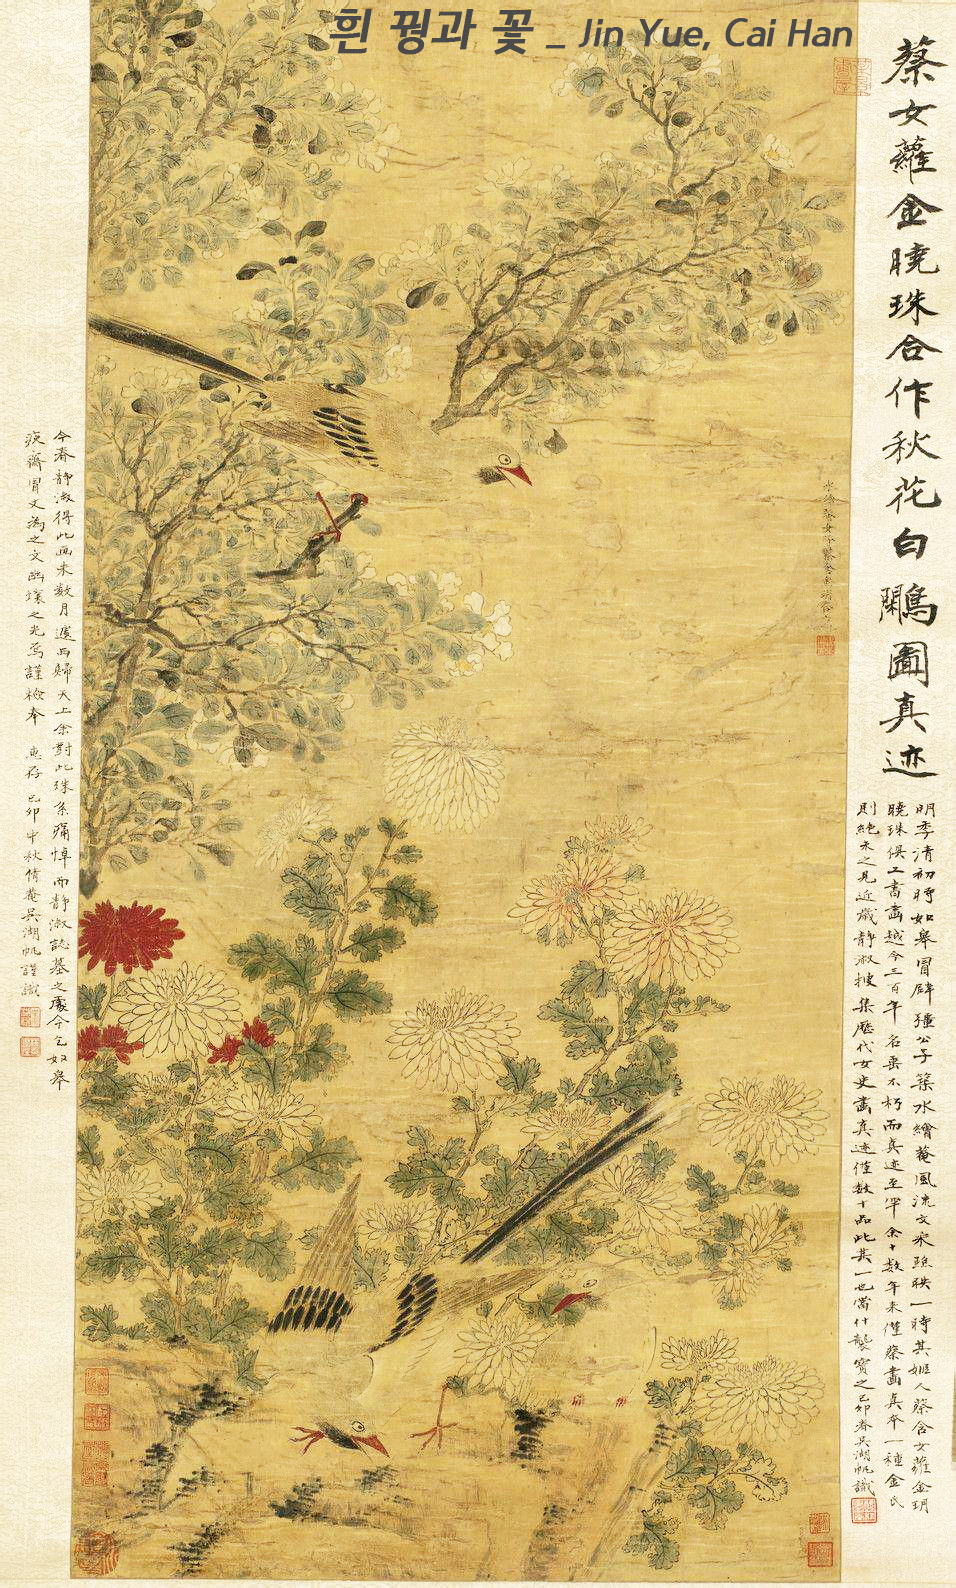 흰 꿩과 꽃 _ Jin Yue, Cai Han
蔡女蘿金曉珠合作秋花白鷴圖真迹
明季清初時如皋冒辟疆公子築水繪菴風流文采照映一時其姬人蔡含女蘿金玥
曉珠俱工書畫越今三百年名垂不朽而真迹至罕余十數年來僅蔡畫真本一種金氏
則絕未之見近歲靜淑搜集歷代女史畫真迹僅數十品此其一也當什襲寶之己卯春吳湖帆識
今春靜淑得此画未數月遽而歸天上余對此珠系痛悼而靜淑誌墓之處今乞如皋
疚齋冒丈為之文幽壙之光焉謹檢奉 惠存 己卯中秋倩菴吳湖帆謹識